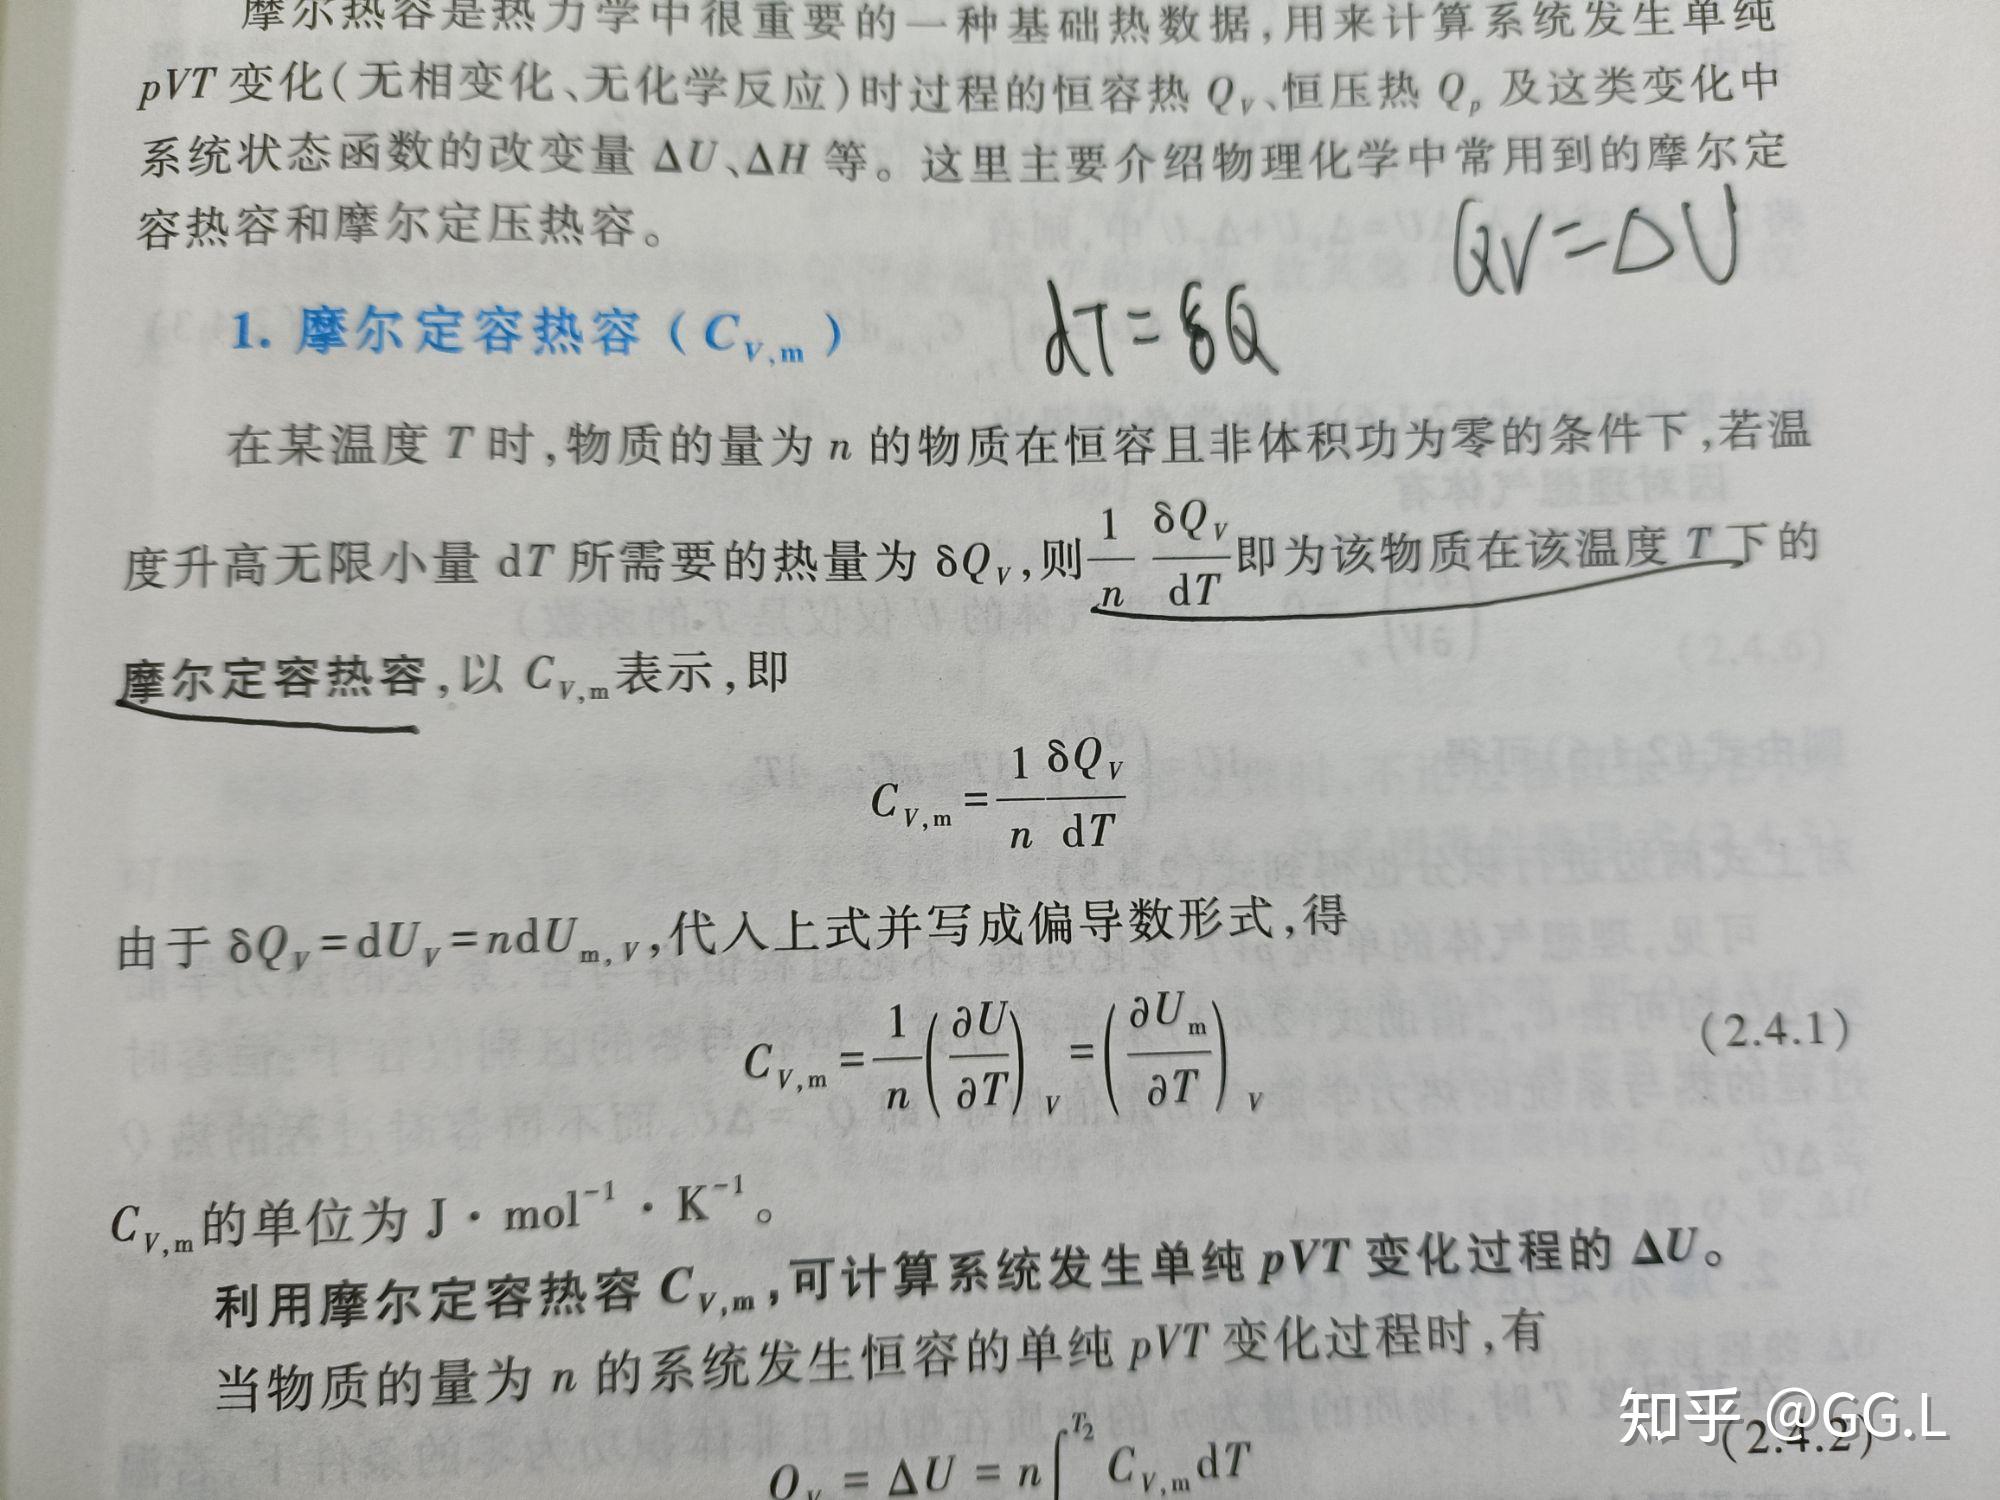 摩尔热容是热力学中很重要的一种基础热数据,用来计算系统发生单纯
pVT 变化(无相变化、无化学反应)时过程的恒容热 Q_V、恒压热 Q_p 及这类变化中
系统状态函数的改变量 ΔU、ΔH 等。这里主要介绍物理化学中常用到的摩尔定
容热容和摩尔定压热容。
QV=ΔU
dT=δQ
1. 摩尔定容热容(C_{V,m})
在某温度 T 时,物质的量为 n 的物质在恒容且非体积功为零的条件下,若温
度升高无限小量 dT 所需要的热量为 δQ_V,则 \frac{1}{n}\frac{δQ_V}{dT} 即为该物质在该温度 T 下的
摩尔定容热容,以 C_{V,m} 表示,即
C_{V,m} = \frac{1}{n}\frac{δQ_V}{dT}
由于 δQ_V=dU_V=ndU_{m,V},代入上式并写成偏导数形式,得
C_{V,m} = \frac{1}{n}\left(\frac{∂U}{∂T}\right)_V = \left(\frac{∂U_m}{∂T}\right)_V (2.4.1)
C_{V,m} 的单位为 J·mol^{-1}·K^{-1}。
利用摩尔定容热容 C_{V,m},可计算系统发生单纯 pVT 变化过程的 ΔU。
当物质的量为 n 的系统发生恒容的单纯 pVT 变化过程时,有
Q_V = ΔU = n∫^{T_2} C_{V,m}dT (2.4.2)
知乎 @GG.L